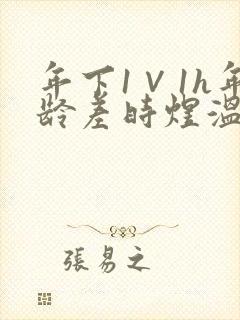 年下1V1h年
龄差時煌溫
張易之